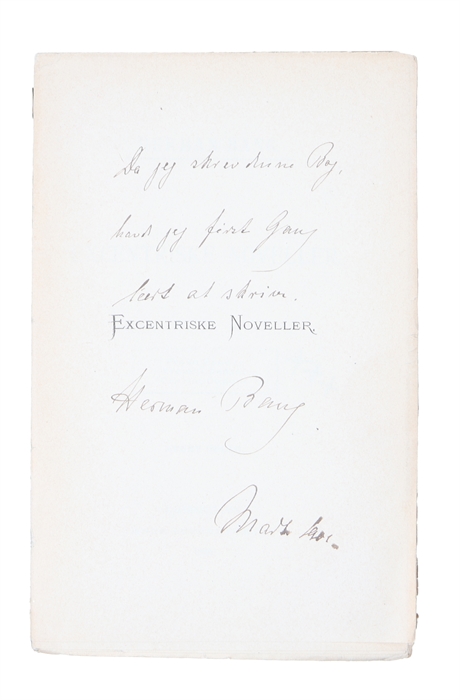 Da jeg skrev denne Bog,
havde jeg først Gang
lært at skrive.
EXCENTRISKE NOVELLER.
Herman Bang
Marts